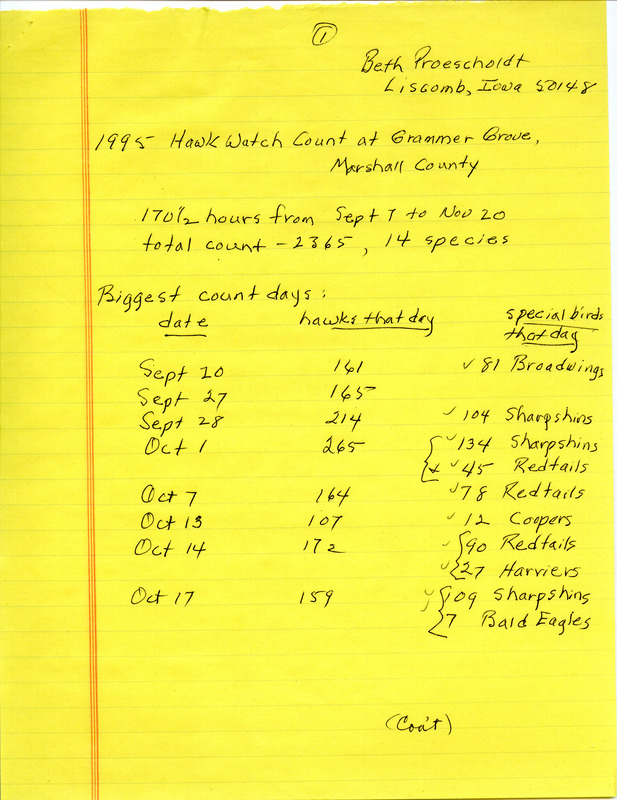 1
Beth Proescholdt
Liscomb, Iowa 50148
1995 Hawk Watch Count at Grammer Grove,
Marshall County
170 1/2 hours from Sept 7 to Nov 20
total count - 2365, 14 species
Biggest count days:
date hawks that day special birds that day
Sept 20 161 ✓ 81 Broadwings
Sept 27 165
Sept 28 214 ✓ 104 Sharpshins
Oct 1 265 { ✓ 134 Sharpshins
+ ✓ 45 Redtails
Oct 7 164 ✓ 78 Redtails
Oct 13 107 ✓ 12 Coopers
Oct 14 172 ✓ { 90 Redtails
✓ 27 Harriers
Oct 17 159 ✓ { 109 Sharpshins
✓ 7 Bald Eagles
(Con't)